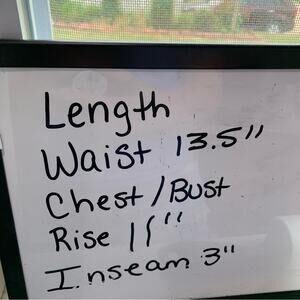 Length
Waist 13.5"
Chest/Bust
Rise 11"
Inseam 3"